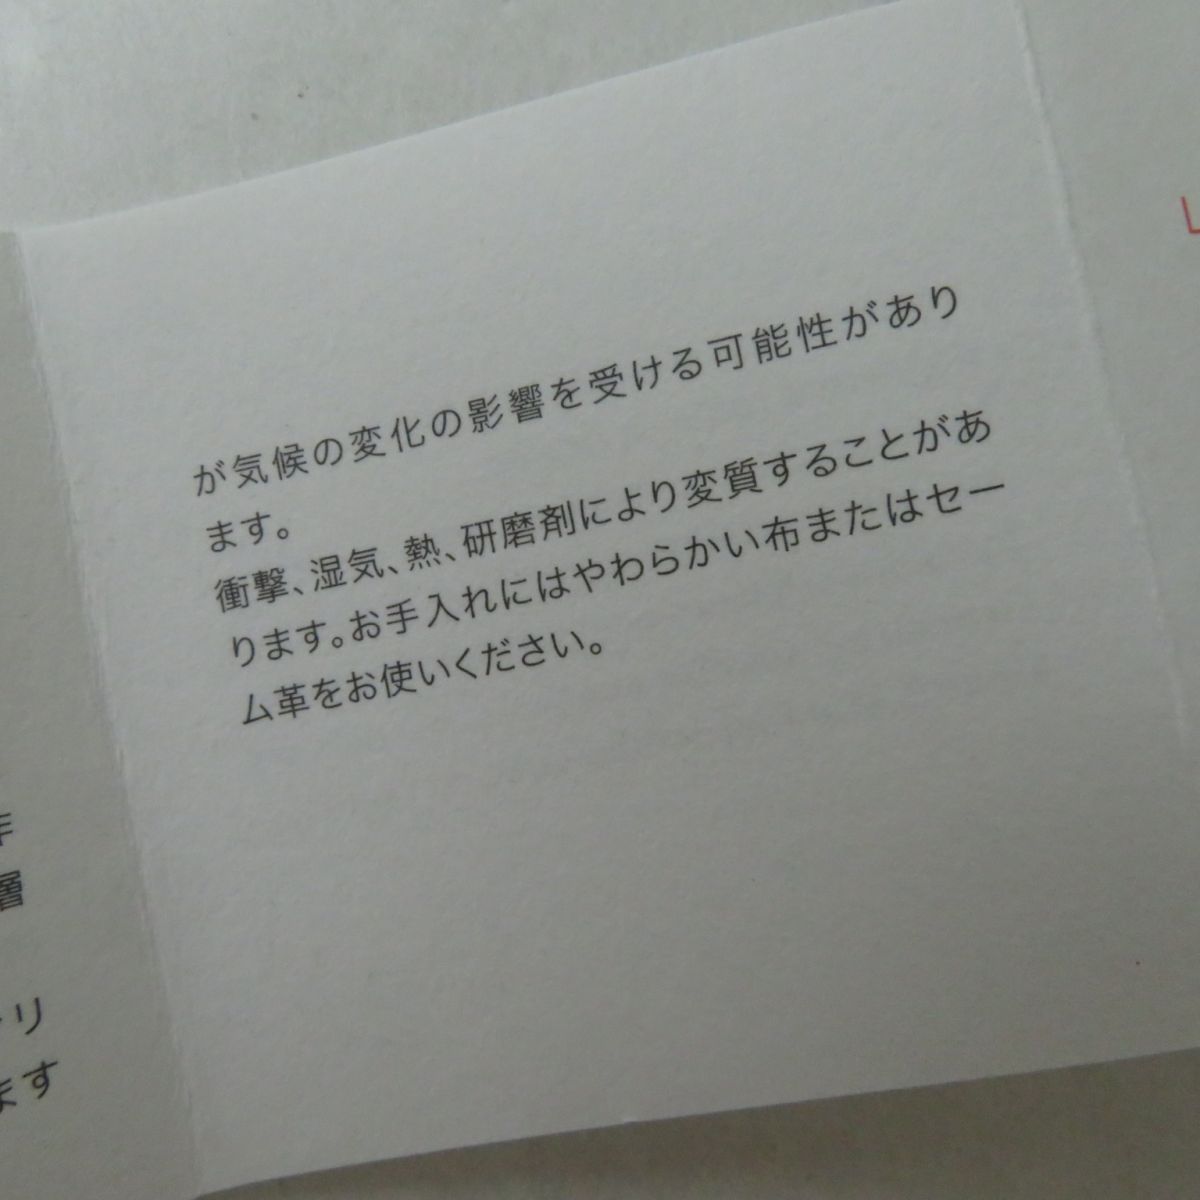 が気候の変化の影響を受ける可能性があり
ます。
衝撃、湿気、熱、研磨剤により変質することがあ
ります。お手入れにはやわらかい布またはセー
ム革をお使いください。
年
層
リ
ます